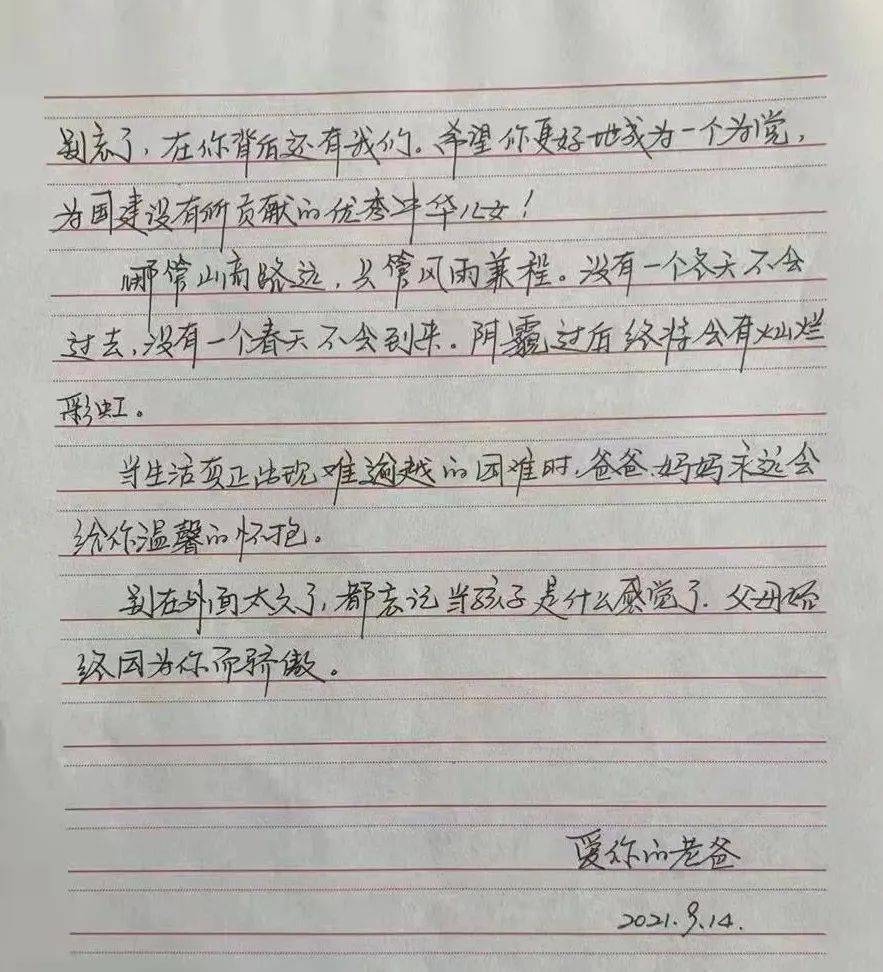 别忘了，在你背后还有我们。希望你更好地成为一个为党，
为国建设有所贡献的优秀中华儿女！
哪管山高路远，只管风雨兼程。没有一个冬天不会
过去，没有一个春天不会到来。阴霾过后终将会有灿烂
彩虹。
当生活真正出现难逾越的困难时，爸爸、妈妈永远会
给你温馨的怀抱。
别在外面太久了，都忘记当孩子是什么感觉了．父母始
终因为你而骄傲。
爱你的老爸
2021.9.14.